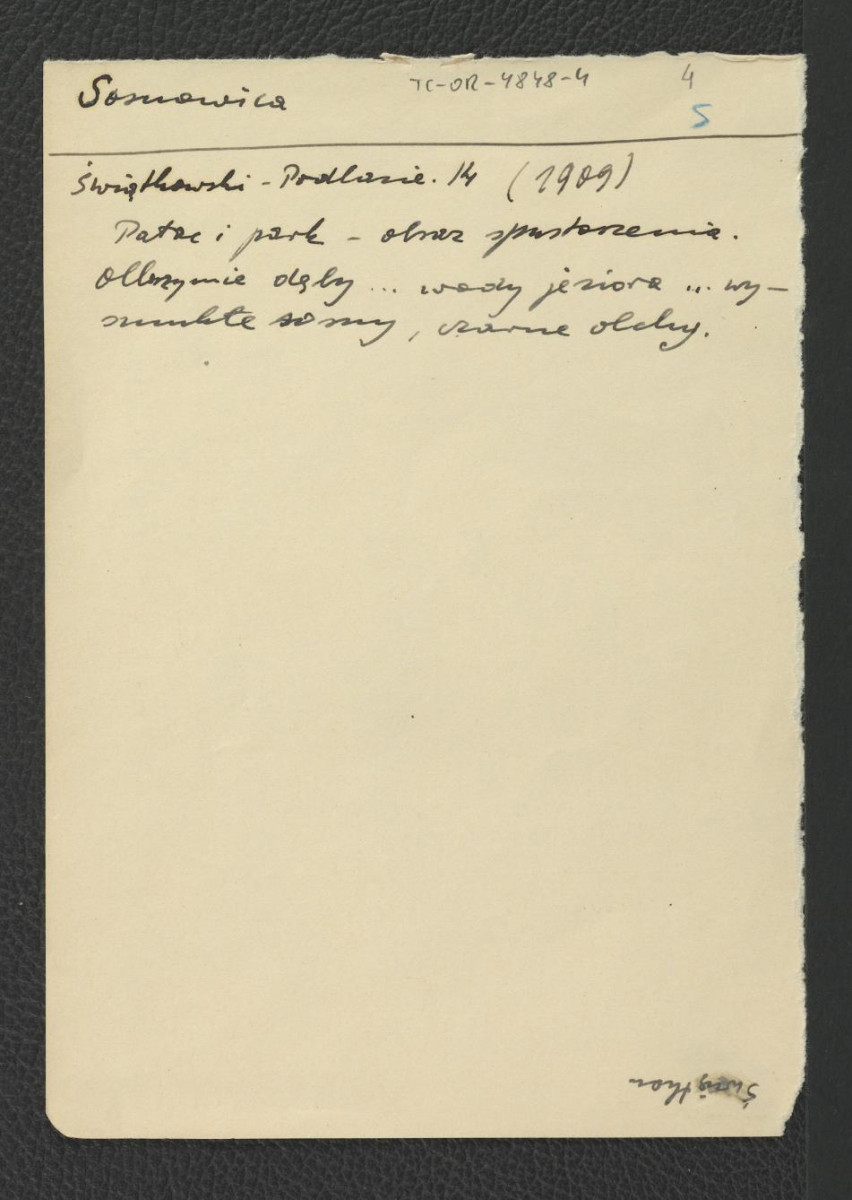 Sosnowica TC-OR-4848-4 4
5
Świątkowski - Podlasie. 14 (1909)
Pałac i park - obraz spustoszenia.
Olbrzymie dęby ... wody jeziora ... wy-
smukłe sosny, czarne olchy.
Świątkow